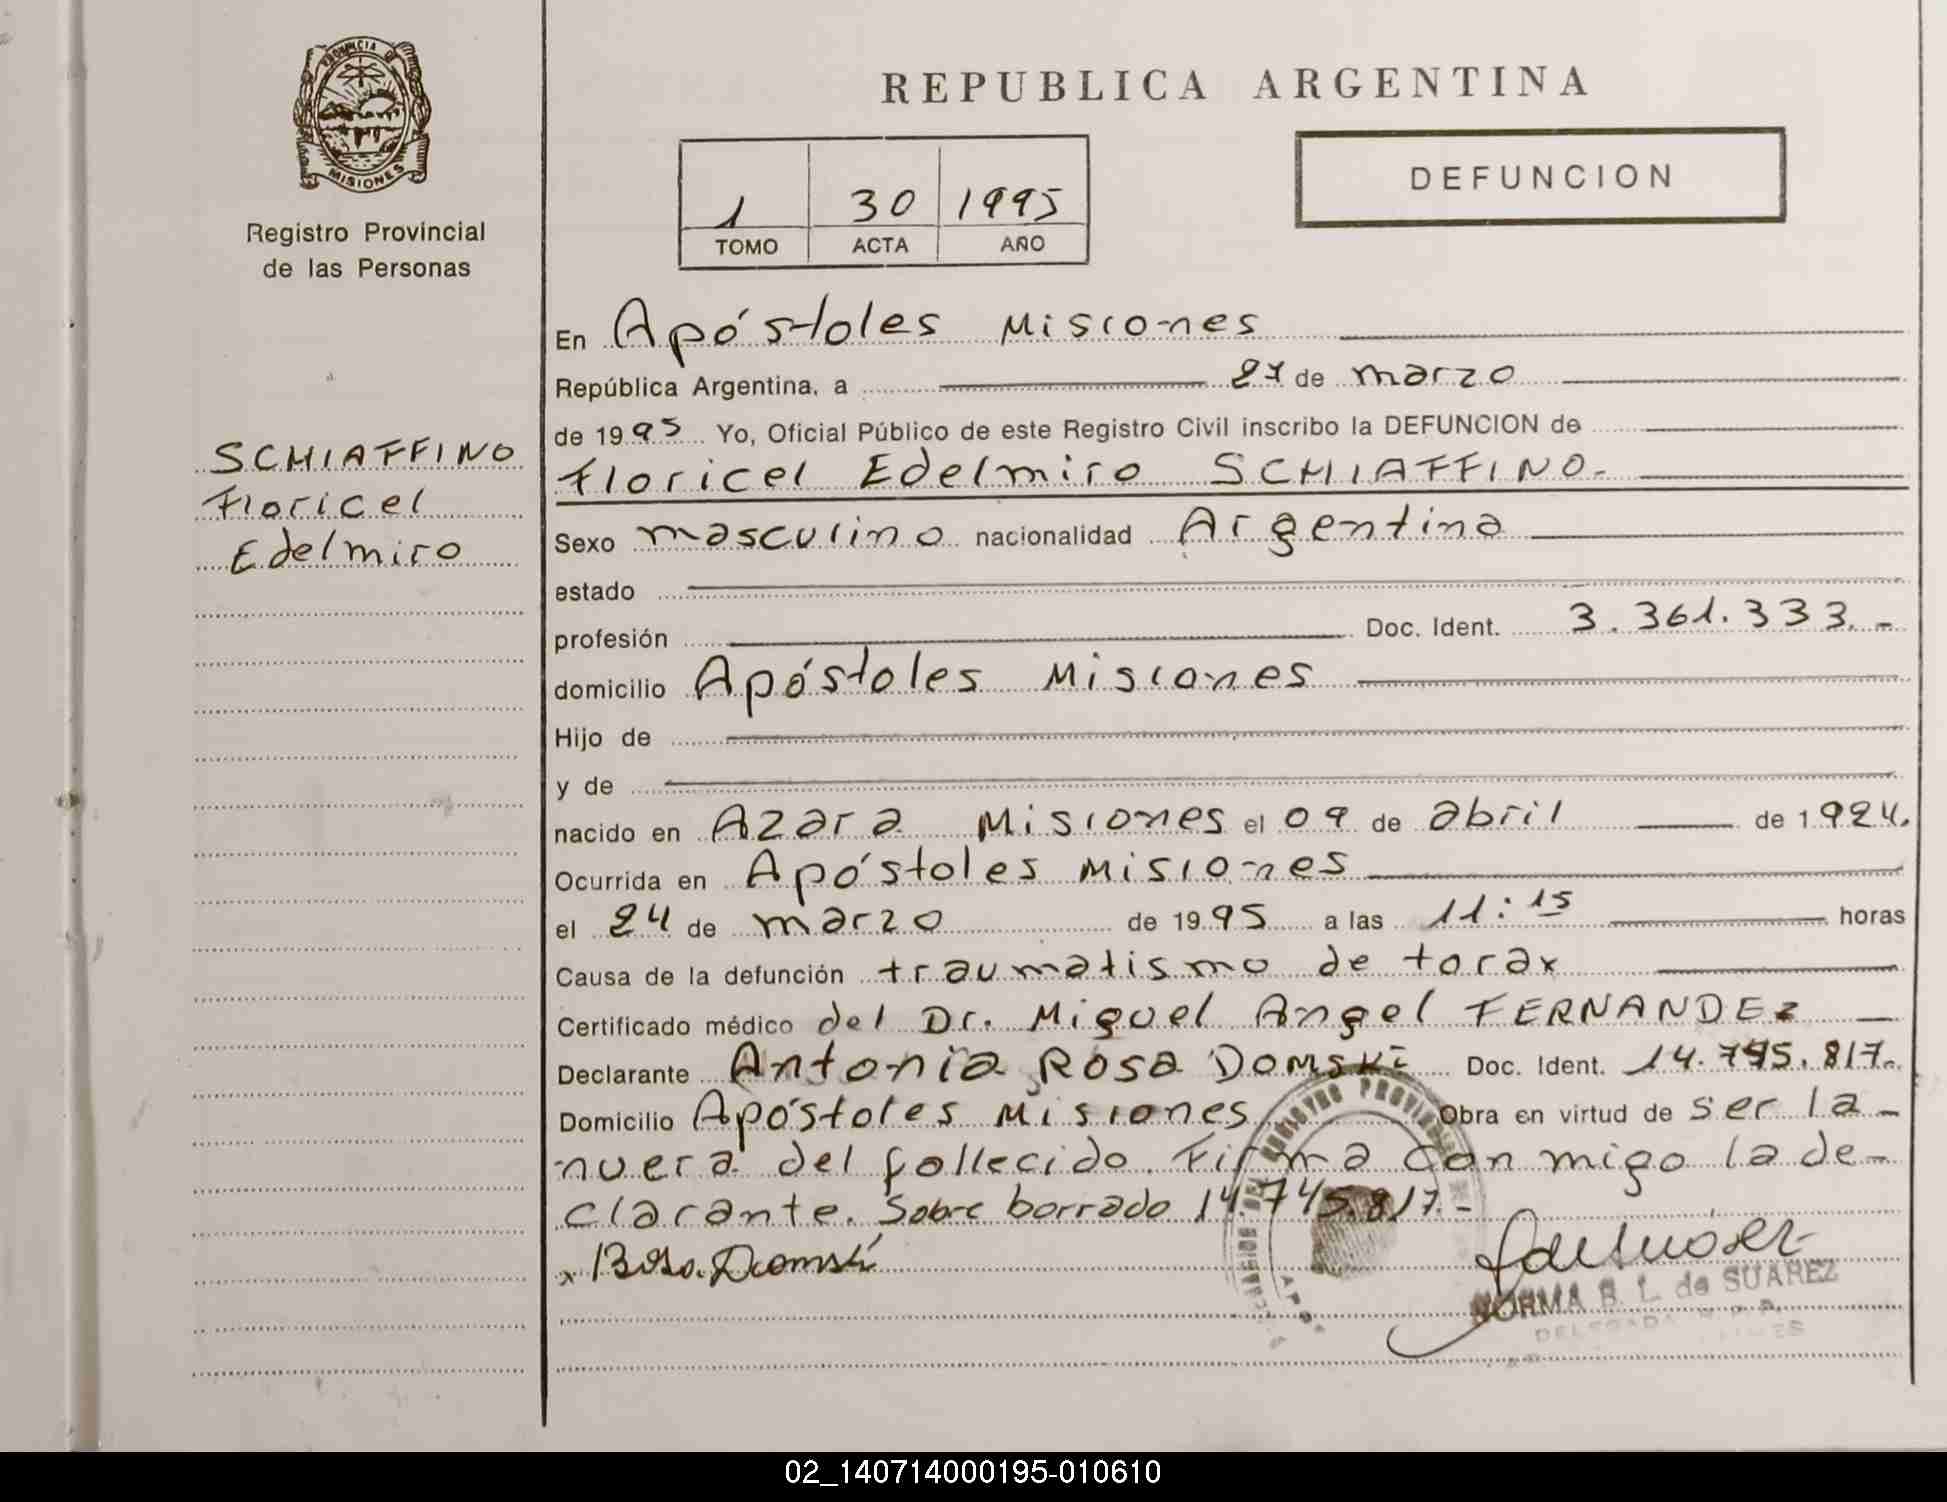 PROVINCIA DE
MISIONES
Registro Provincial
de las Personas
SCHIAFFINO
Floricel
Edelmiro
REPUBLICA ARGENTINA
1 30 1995
TOMO ACTA AÑO
DEFUNCION
En Apóstoles Misiones
República Argentina, a 27 de marzo
de 1995 Yo, Oficial Público de este Registro Civil inscribo la DEFUNCION de
Floricel Edelmiro SCHIAFFINO.-
Sexo masculino nacionalidad Argentina
estado
profesión Doc. Ident. 3.361.333.-
domicilio Apóstoles Misiones
Hijo de
y de
nacido en Azara Misiones el 09 de abril de 1924.
Ocurrida en Apóstoles Misiones
el 24 de marzo de 1995 a las 11:15 horas
Causa de la defunción traumatismo de torax
Certificado médico del Dr. Miguel Angel FERNANDEZ
Declarante Antonia Rosa Domski Doc. Ident. 14.745.817.
Domicilio Apóstoles Misiones Obra en virtud de ser la -
nuera del fallecido. Firma con migo la de-
clarante. Sobre borrado 14.745.817.-
x Rosa Domski
NORMA B. L. de SUAREZ
DELEGADA
02_140714000195-010610